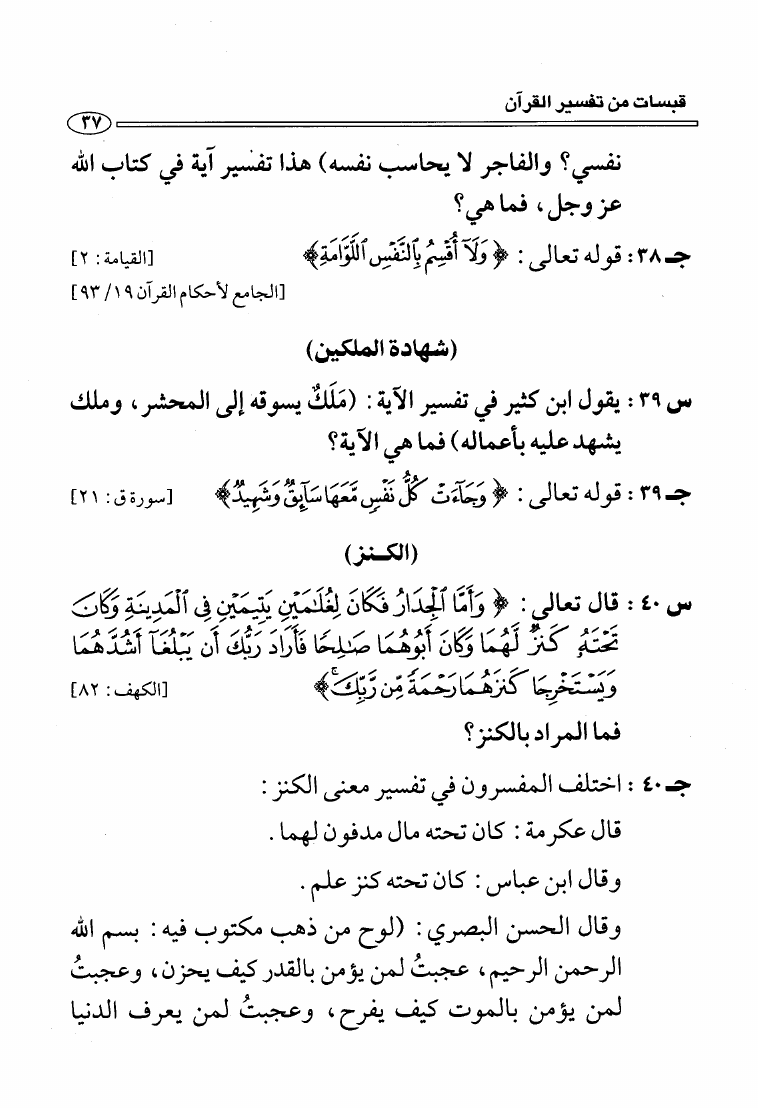 قبسات من تفسير القرآن
٣٧
نفسي؟ والفاجر لا يحاسب نفسه) هذا تفسير آية في كتاب الله
عز وجل، فما هي؟
جـ ٣٨: قوله تعالى: ﴿ وَلَآ أُقۡسِمُ بِٱلنَّفۡسِ ٱللَّوَّامَةِ﴾ [القيامة: ٢]
[الجامع لأحكام القرآن ١٩/ ٩٣]
(شهادة الملكين)
س ٣٩: يقول ابن كثير في تفسير الآية: (مَلَكٌ يسوقه إلى المحشر، وملك
يشهد عليه بأعماله) فما هي الآية؟
جـ ٣٩: قوله تعالى: ﴿ وَجَآءَتۡ كُلُّ نَفۡسٖ مَّعَهَا سَآئِقٞ وَشَهِيدٞ﴾ [سورة ق: ٢١]
(الكـنـز)
س ٤٠: قال تعالى: ﴿ وَأَمَّا ٱلۡجِدَارُ فَكَانَ لِغُلَٰمَيۡنِ يَتِيمَيۡنِ فِي ٱلۡمَدِينَةِ وَكَانَ
تَحۡتَهُۥ كَنزٞ لَّهُمَا وَكَانَ أَبُوهُمَا صَٰلِحٗا فَأَرَادَ رَبُّكَ أَن يَبۡلُغَآ أَشُدَّهُمَا
وَيَسۡتَخۡرِجَا كَنزَهُمَا رَحۡمَةٗ مِّن رَّبِّكَۚ﴾ [الكهف: ٨٢]
فما المراد بالكنز؟
جـ ٤٠: اختلف المفسرون في تفسير معنى الكنز:
قال عكرمة: كان تحته مال مدفون لهما.
وقال ابن عباس: كان تحته كنز علم.
وقال الحسن البصري: (لوح من ذهب مكتوب فيه: بسم الله
الرحمن الرحيم، عجبتُ لمن يؤمن بالقدر كيف يحزن، وعجبتُ
لمن يؤمن بالموت كيف يفرح، وعجبتُ لمن يعرف الدنيا